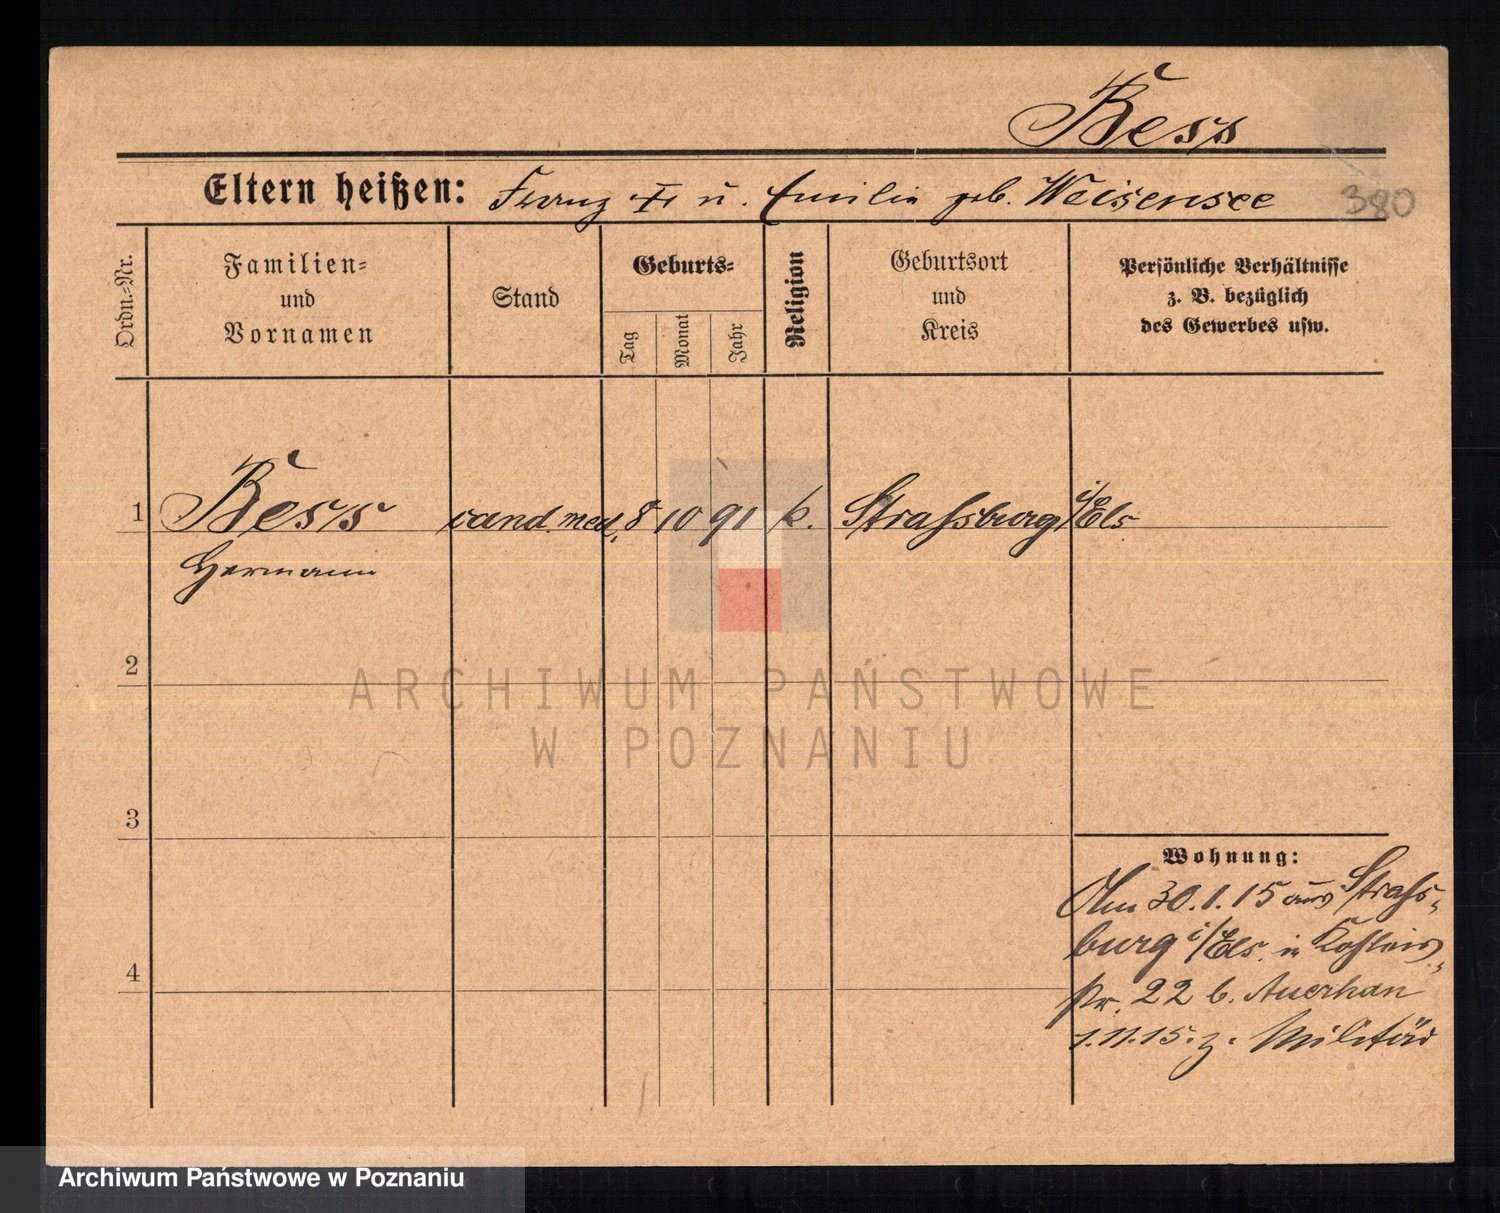 Bess
Eltern heißen: Franz † u. Emilie geb. Weisensee 380
Ordn.-Nr.
Familien- und Vornamen
Stand
Geburts-
Tag
Monat
Jahr
Religion
Geburtsort und Kreis
Persönliche Verhältnisse
z. B. bezüglich
des Gewerbes usw.
1 Bess cand. med. 8 10 91 k. Straßburg i/Els
Hermann
2
3
4
Wohnung:
Am 30.1.15 aus Straßs-
burg i/Els. in
22 b. Auerhan
1.11.15. z. Militär
ARCHIWUM PAŃSTWOWE
W POZNANIU
Archiwum Państwowe w Poznaniu